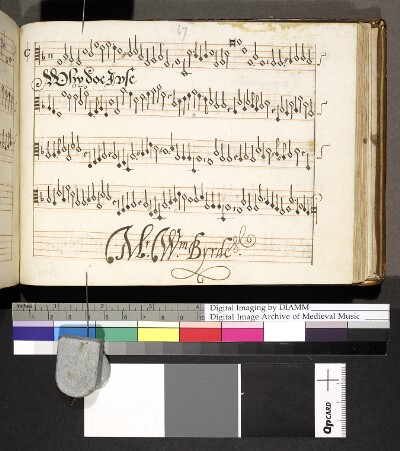 67
Why doe I vse
Mr. Wm Byrde
inches 1 2 3 4
Digital Imaging by DIAMM
Digital Image Archive of Medieval Music
QPCARD